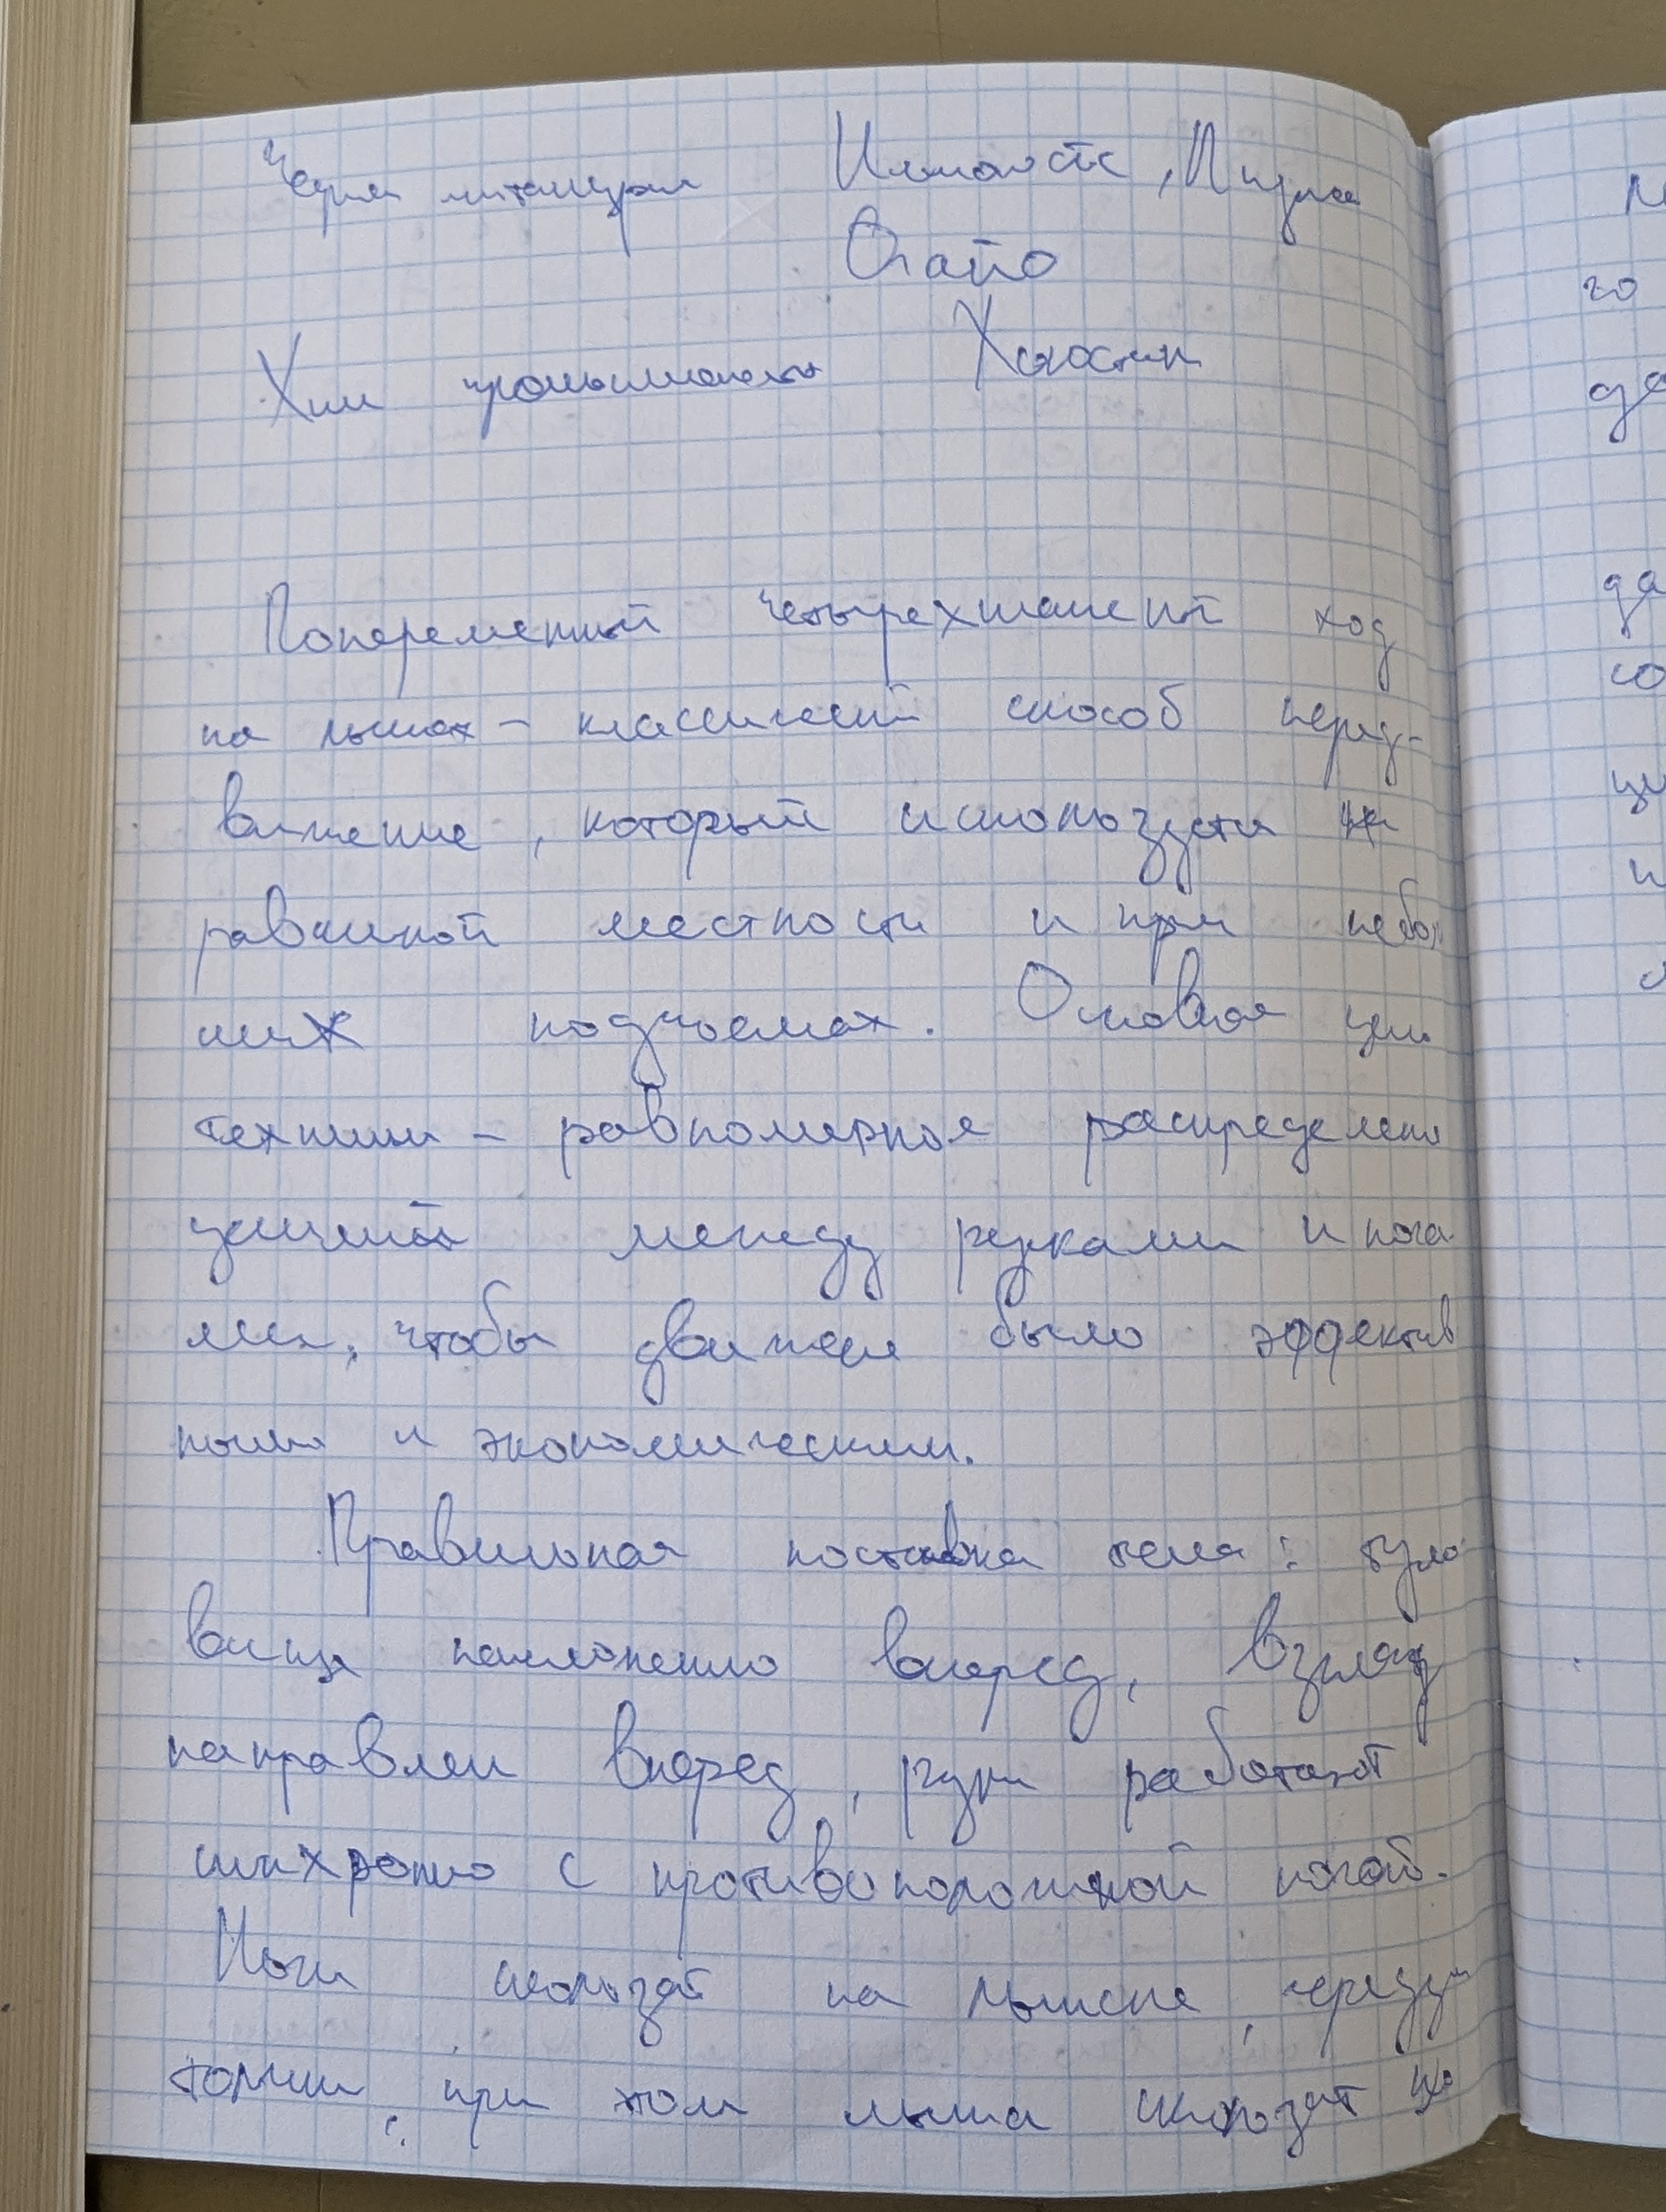 Черн металлургия
Огайо
Хим промышленность Хьюстон
Попеременный четырехшажный ход
на лыжах – классический способ перед-
вижение, который используется на
равнинной местности и при небол
ших подъемах. Основная цель
техники – равномерное распределени
усилий между руками и нога
ми, чтобы движение было эффектив
ным и экономическим.
Правильная поставка тела: туло
вище наклоненно вперед, взгляд
направлен вперед, руки работают
синхронно с противоположной ногой.
Ноги скользят на лыжне, череду
толчки, при этом лыжа скользит по
го
да
да
со
ци
и